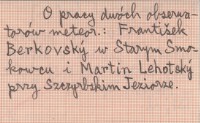 O pracy dwóch obserwa-
torów meteor.: František
Berkovský w Starym Smo-
kowcu i Martin Lehotský
przy Szczyrbskim Jeziorze.